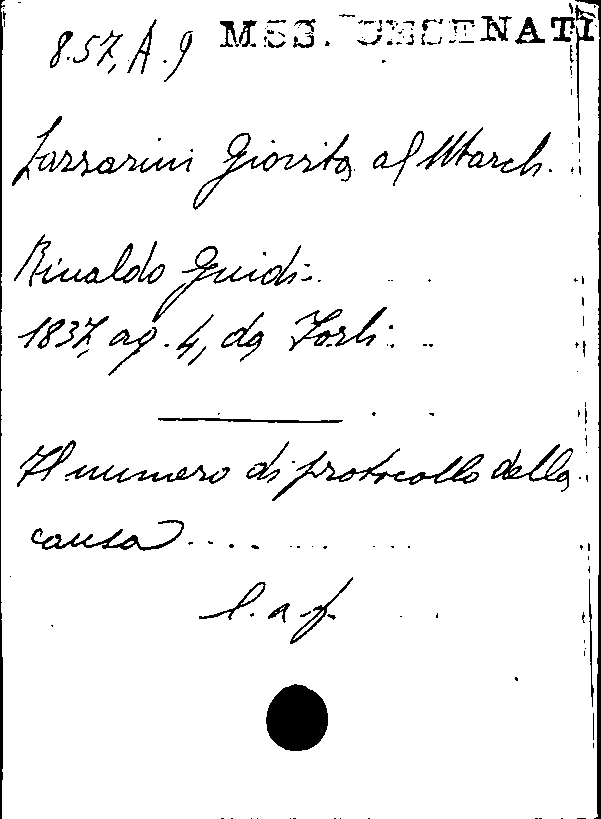 8.57, A.9 MSS. CESENATI
Lazzarini Giovita al March.
Rinaldo Guidi.
1837, ag. 4, da Forlì.
Il numero di protocollo della
causa ....
l. a f.